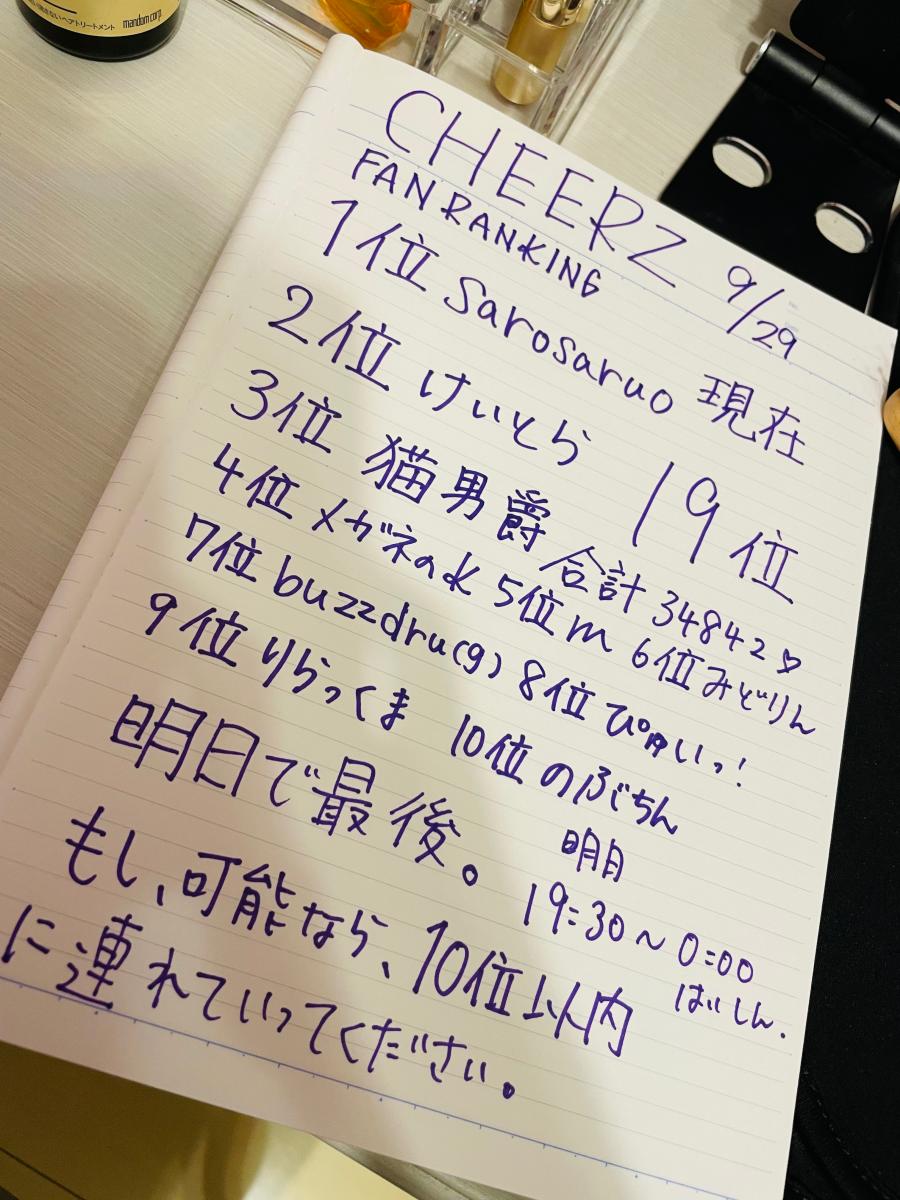 さないヘアトリートメント mandom corp.
CHEERZ 9/29
FAN RANKING
1位 Sarosaruo 現在
2位 けいとら 19位
3位 猫男爵 合計 34842♡
4位 メガネのk 5位 m 6位 みどりん
7位 buzzdru(g) 8位 ぴゅいっ!
9位 りらっくま 10位 のぶちん
明日で最後。 明日
19:30~0:00
はいしん.
もし、可能なら、10位以内
に連れていってください。